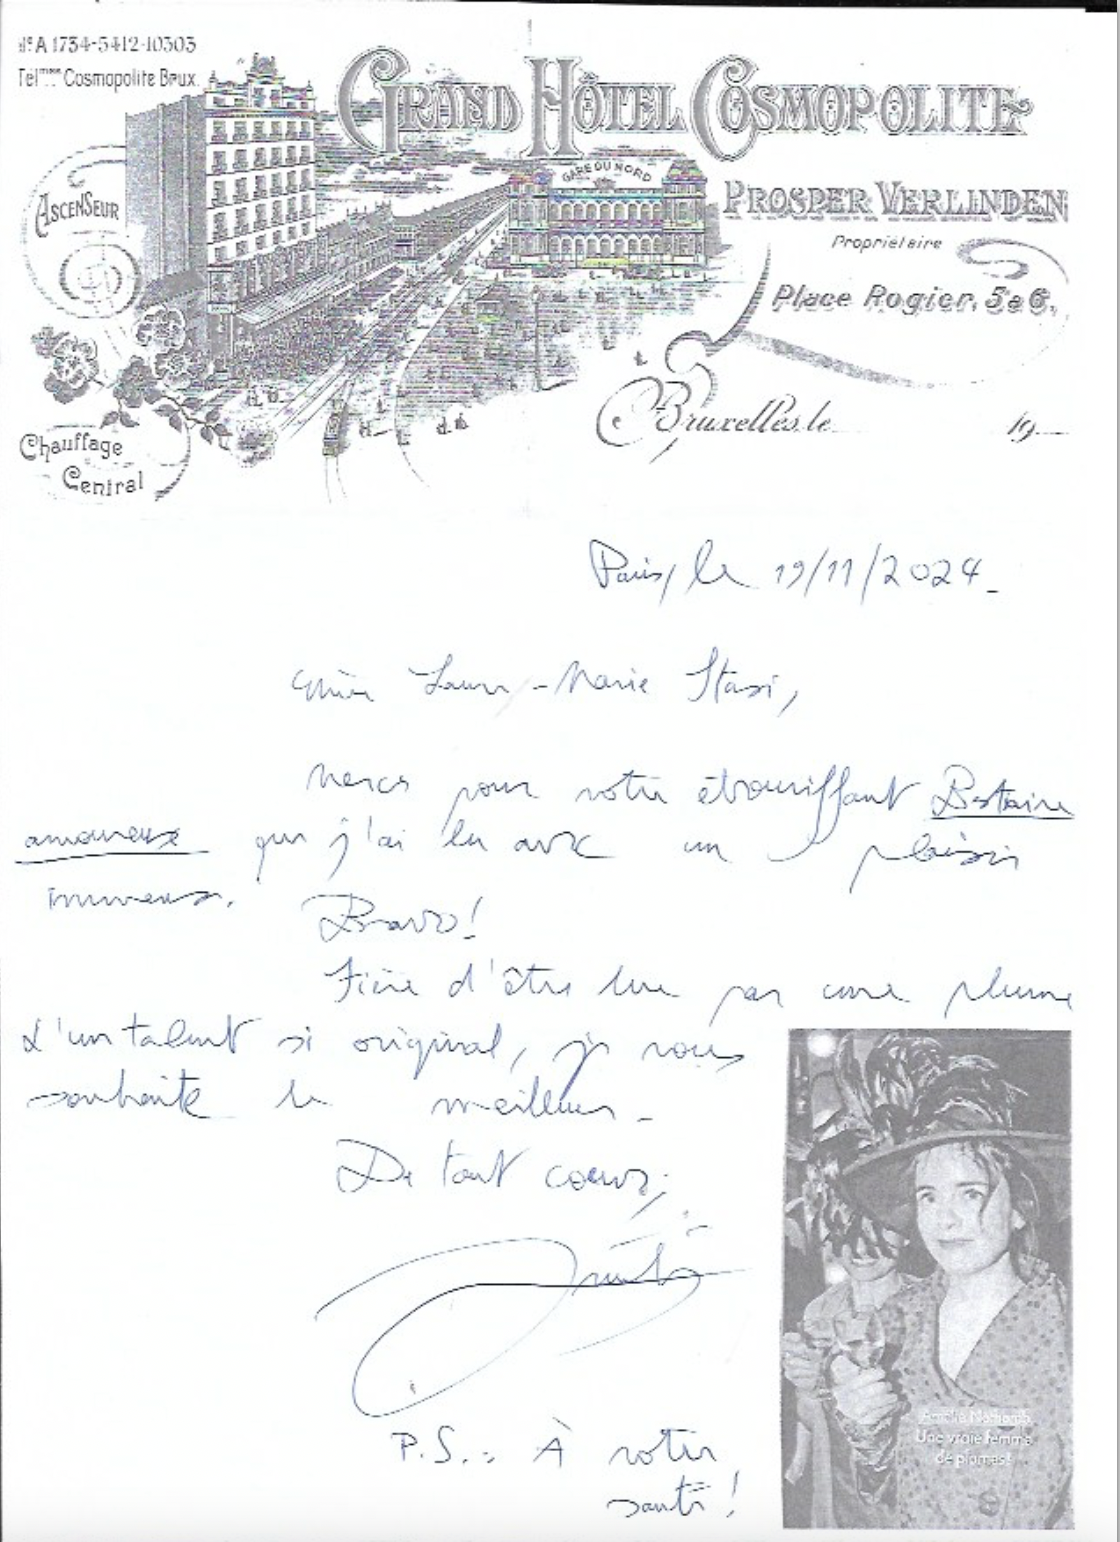 N° A 1734-5412-10303
Tél Cosmopolite Brux.
GRAND HÔTEL COSMOPOLITE
GARE DU NORD
ASCENSEUR
PROSPER VERLINDEN
Propriétaire
Place Rogier, 5 a 6,
Bruxelles, le 19
Chauffage
Central
Paris, le 19/11/2024
Chère -Marie Stasi,
Merci pour votre ébouriffant Bestiaire
amoureux que j'ai lu avec un plaisir
immense.
Bravo!
Fière d'être lue par une plume
d'un talent si original, je vous
souhaite le meilleur.
De tout cœur,
P.S.: À votre
santé!
Amélie Nothomb
Une vraie femme
de plumes!